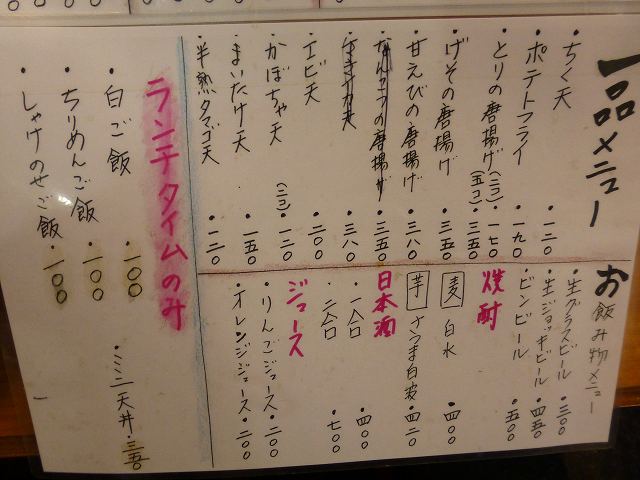 一品メニュー
・ちく天 ・一二〇
・ポテトフライ ・一九〇
・とりの唐揚げ(二コ) ・一七〇
(五コ) ・三五〇
・げその唐揚げ ・三五〇
・甘えびの唐揚げ ・三八〇
・なんこつの唐揚げ ・三五〇
・三八〇
・エビ天 ・二〇〇
・かぼちゃ天(二コ) ・一二〇
・まいたけ天 ・一五〇
・半熟タマゴ天 ・一二〇
お飲み物メニュー
・生グラスビール ・三〇〇
・生ジョッキビール ・四五〇
・ビンビール ・五〇〇
焼酎
麦 白水 ・四〇〇
芋 さつま白波 ・四二〇
日本酒
・一合 ・四〇〇
・二合 ・七〇〇
ジュース
・りんごジュース ・二〇〇
・オレンジジュース ・二〇〇
ランチタイムのみ
・白ご飯 ・一〇〇
・ちりめんご飯 ・一〇〇
・しゃけのせご飯 ・一〇〇
・ミニ天丼 ・三五〇